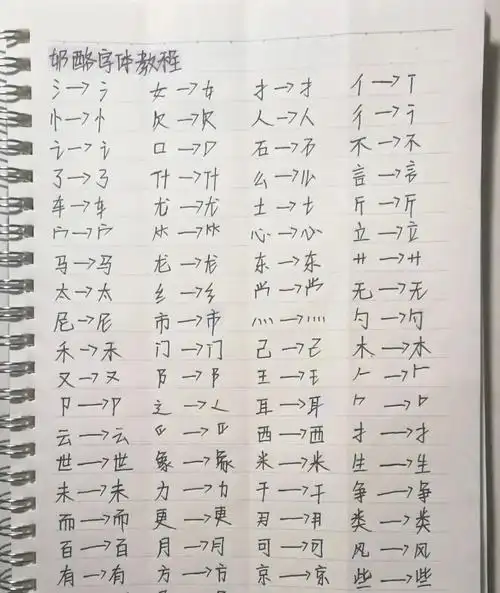 奶酪字体教程
氵→氵 女→女 才→才 亻→亻
忄→忄 欠→欠 人→人 彳→彳
讠→讠 口→口 石→石 不→不
了→了 什→什 么→么 言→言
车→车 尤→尤 土→土 斤→斤
宀→宀 𥫗→𥫗 心→心 立→立
马→马 龙→龙 东→东 艹→艹
太→太 纟→纟 龸→龸 无→无
尼→尼 市→市 灬→灬 勺→勺
禾→禾 门→门 己→己 木→木
又→又 阝→阝 王→王 𠂉→𠂉
卩→卩 辶→辶 耳→耳
云→云 西→西 才→才
世→世 象→象 米→米 生→生
未→未 力→力 干→干 争→争
而→而 更→更 类→类
百→百 月→月 可→可 风→风
有→有 方→方 京→京 些→些